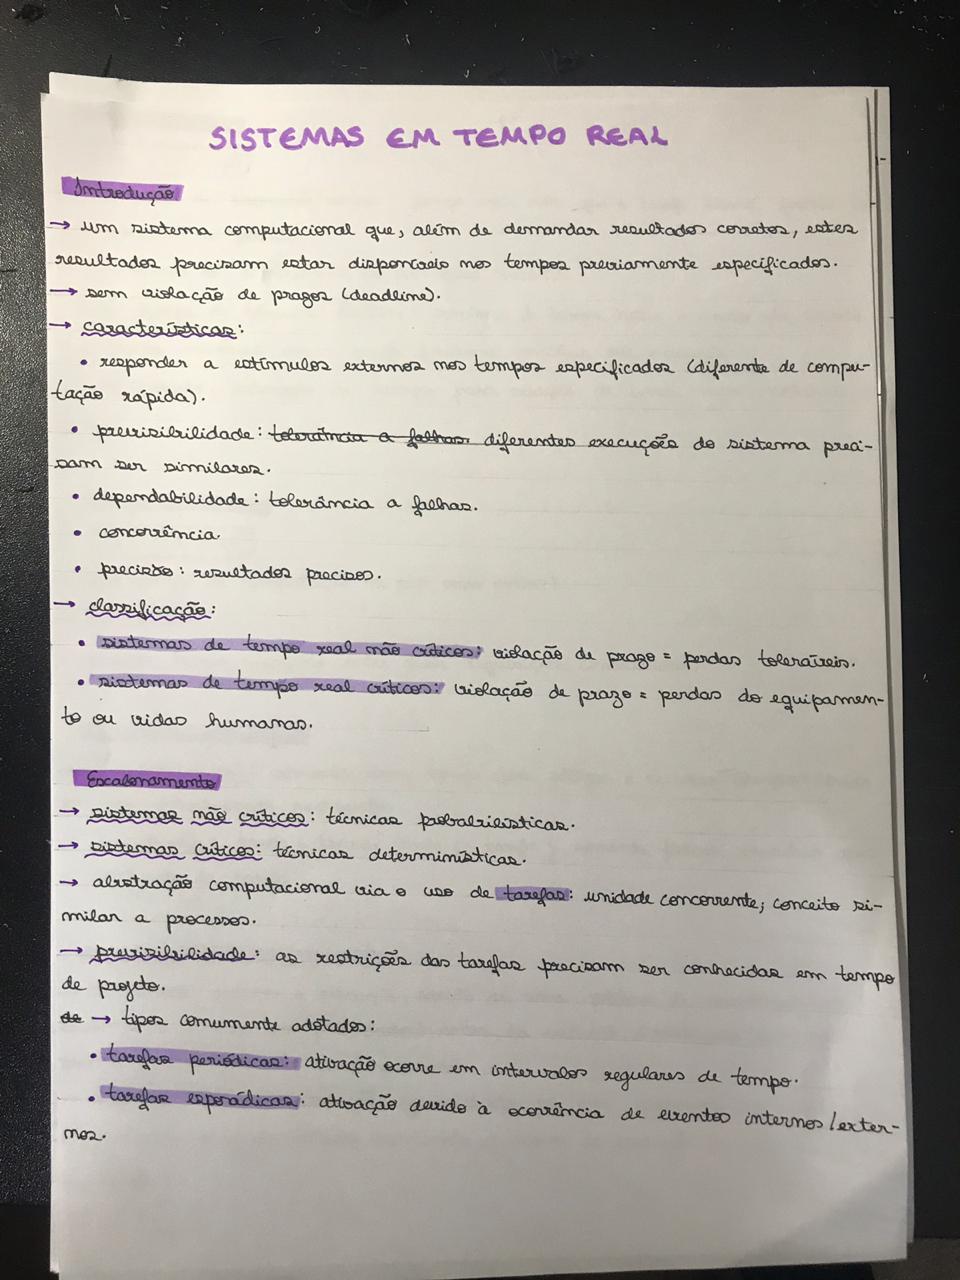 SISTEMAS EM TEMPO REAL
Introdução
→ um sistema computacional que, além de demandar resultados corretos, estes
resultados precisam estar disponíveis nos tempos previamente especificados.
→ sem violação de prazos (deadline).
→ características:
• responder a estímulos externos nos tempos especificados (diferente de compu-
tação rápida).
• previsibilidade: tolerância a falhas. diferentes execuções do sistema preci-
sam ser similares.
• dependabilidade: tolerância a falhas.
• concorrência.
• precisão: resultados precisos.
→ classificação:
• sistemas de tempo real não críticos: violação de prazo = perdas toleráveis.
• sistemas de tempo real críticos: violação de prazo = perdas do equipamen-
to ou vidas humanas.
Escalonamento
→ sistemas não críticos: técnicas probabilísticas.
→ sistemas críticos: técnicas determinísticas.
→ abstração computacional via o uso de tarefas: unidade concorrente; conceito si-
milar a processos.
→ previsibilidade: as restrições das tarefas precisam ser conhecidas em tempo
de projeto.
de → tipos comumente adotados:
• tarefas periódicas: ativação ocorre em intervalos regulares de tempo.
• tarefas esporádicas: ativação devido à ocorrência de eventos internos/exter-
nos.